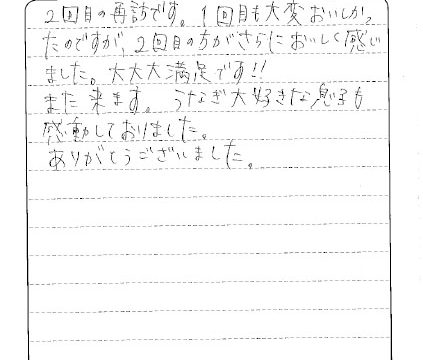 2回目の再訪です。1回目も大変おいしかっ
たのですが、2回目の方がさらにおいしく感じ
ました。大大大満足です!!
また来ます。うなぎ大好きな息子も
感動しておりました。
ありがとうございました。